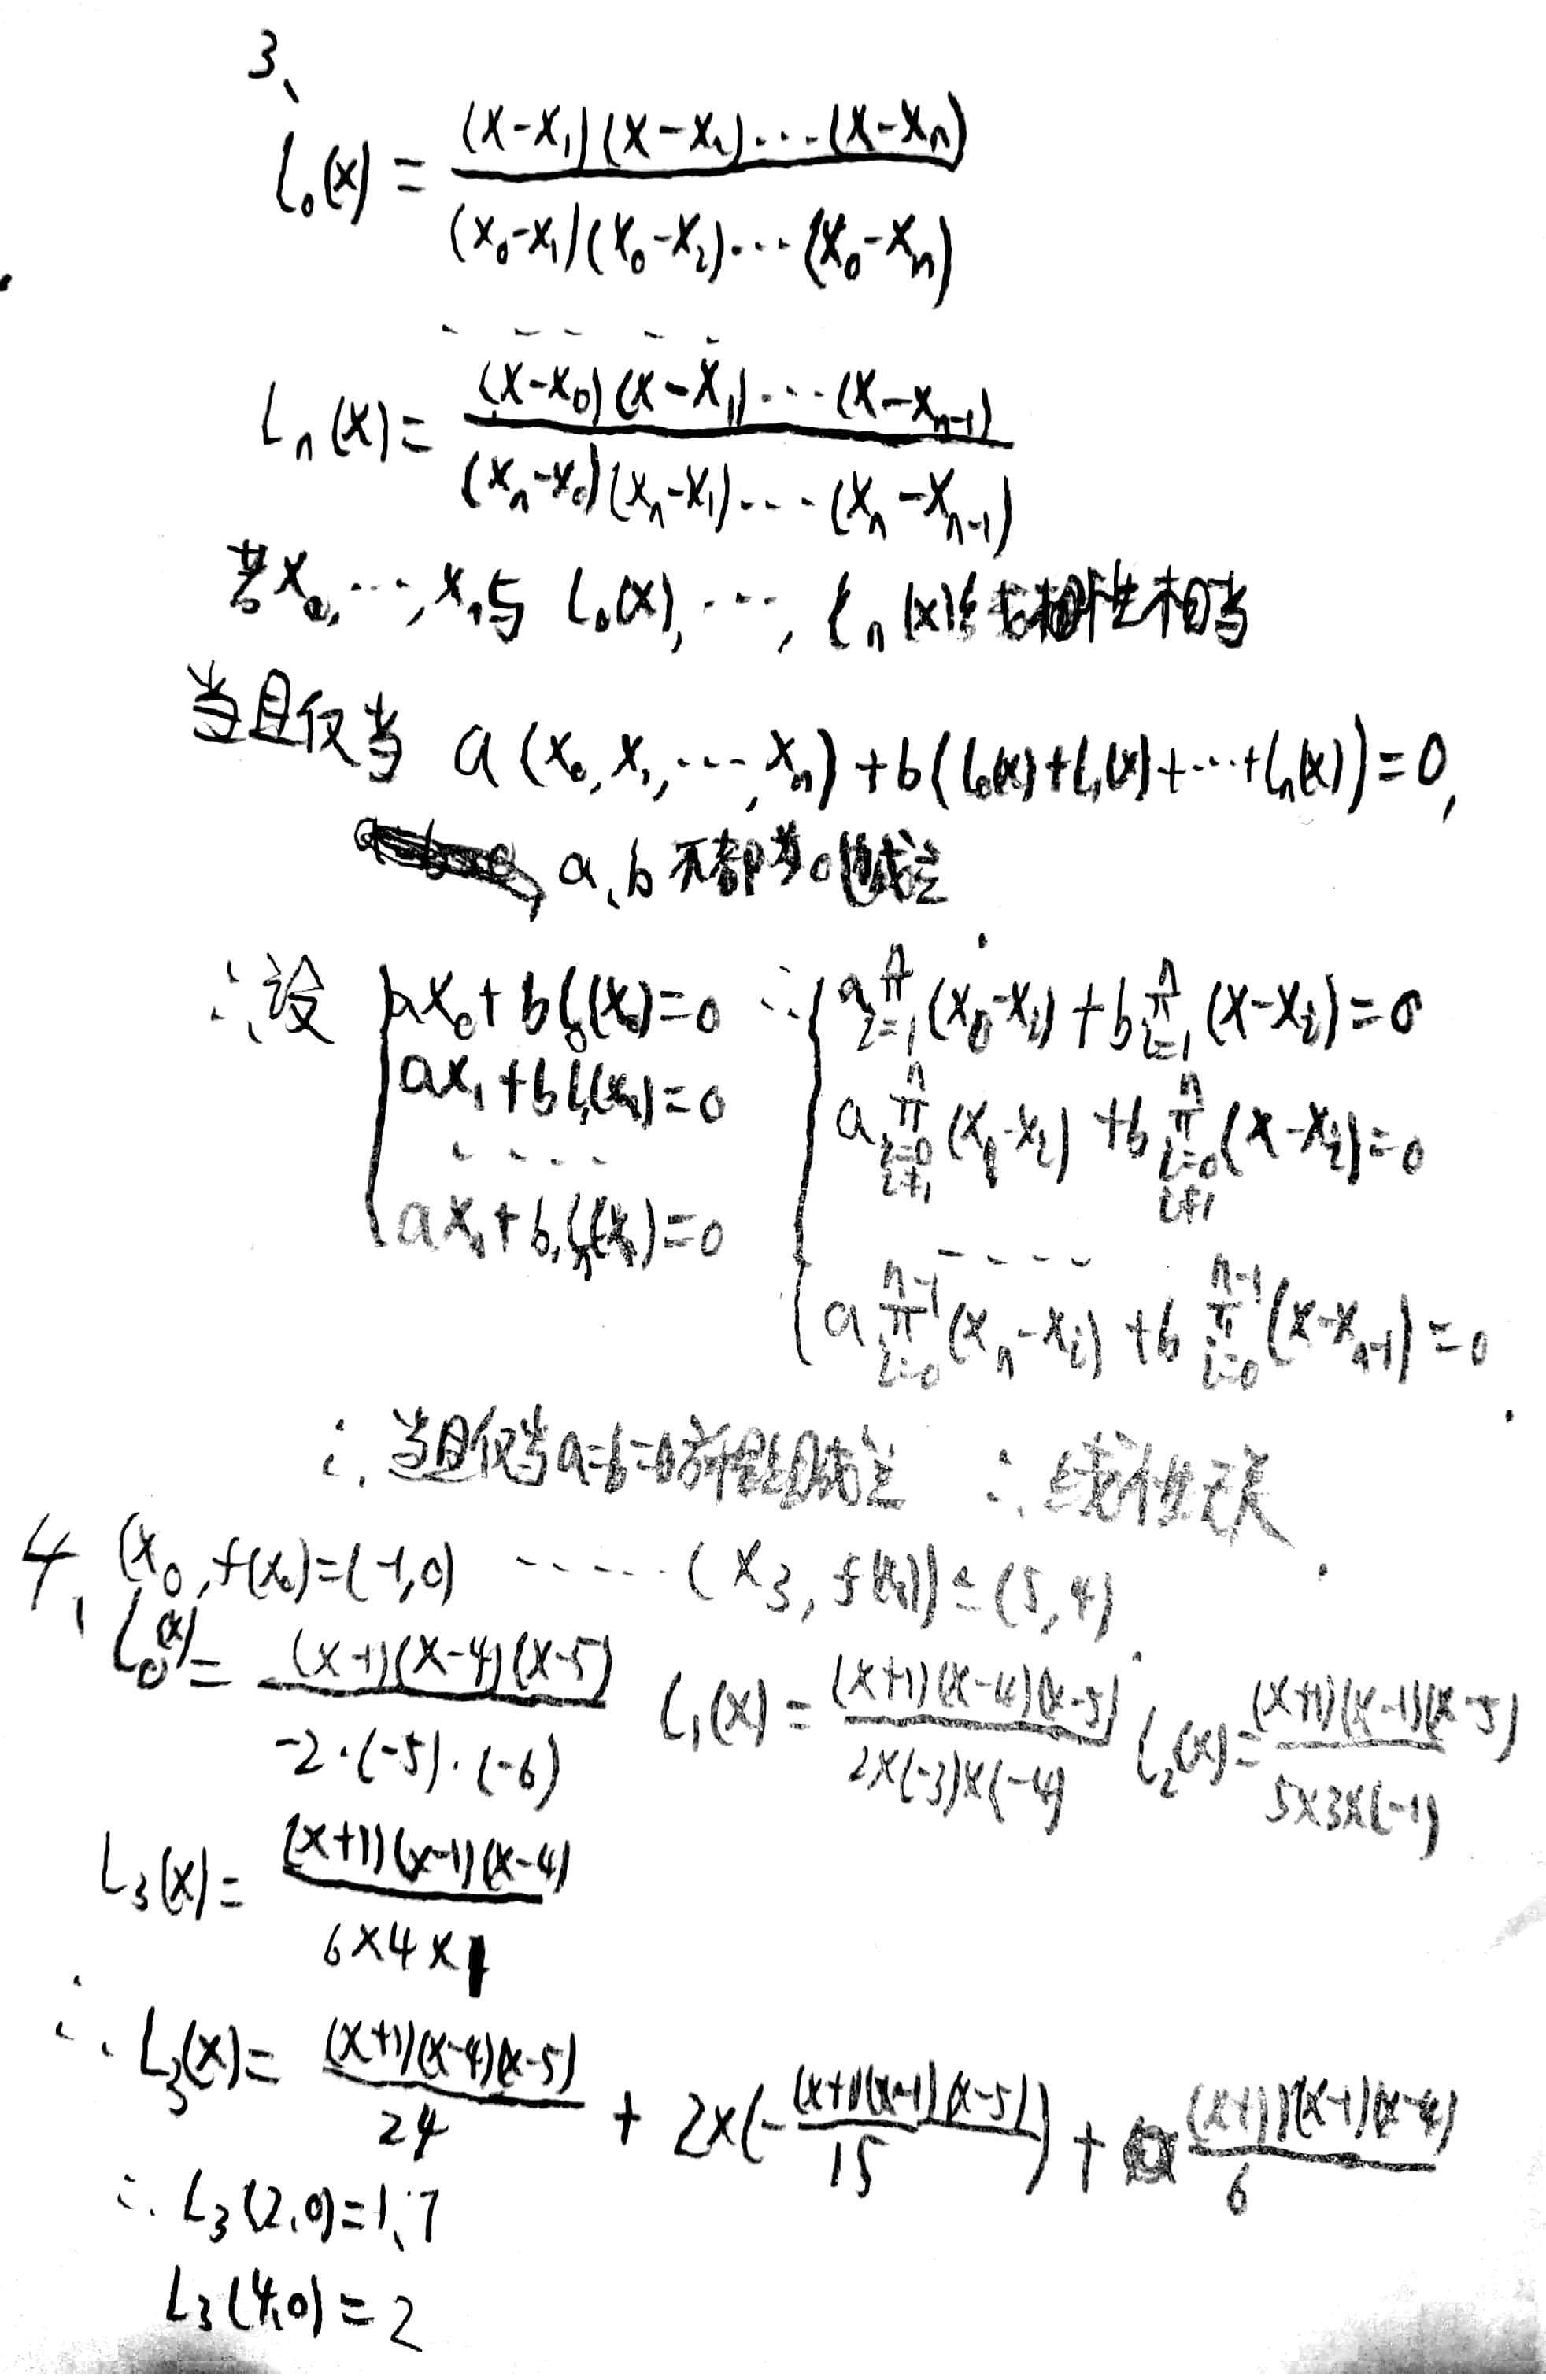 3、
l₀(x) = (x-x₁)(x-x₂)···(x-xₙ) / (x₀-x₁)(x₀-x₂)···(x₀-xₙ)
·····
lₙ(x) = (x-x₀)(x-x₁)···(x-xₙ₋₁) / (xₙ-x₀)(xₙ-x₁)···(xₙ-xₙ₋₁)
若x₀,···,xₙ与 l₀(x),···,lₙ(x) 性相当
当且仅当 a(x₀,x₁,···,xₙ)+b(l₀(x)+l₁(x)+···+lₙ(x))=0,
a、b不都为0 成立
∴设 { ax₀+bl₀(x₀)=0 ∴ { a∏ⁿᵢ₌₁(x₀-xᵢ)+b∏ⁿᵢ₌₁(x-xᵢ)=0
ax₁+bl₁(x₁)=0 a∏ⁿᵢ₌₀,ᵢ≠₁(x₁-xᵢ)+b∏ⁿᵢ₌₀,ᵢ≠₁(x-xᵢ)=0
···· ····
axₙ+blₙ(xₙ)=0 a∏ⁿ⁻¹ᵢ₌₀(xₙ-xᵢ)+b∏ⁿ⁻¹ᵢ₌₀(x-xₙ₋₁)=0
∴当且仅当a=b=0方程组成立 ∴线性无关
4、(x₀,f(x₀)=(-1,0) ····· (x₃,f(x₃))=(5,4)
l₀(x)= (x-1)(x-4)(x-5) / -2·(-5)·(-6) l₁(x)= (x+1)(x-4)(x-5) / 2×(-3)×(-4) l₂(x)= (x+1)(x-1)(x-5) / 5×3×(-1)
l₃(x)= (x+1)(x-1)(x-4) / 6×4×1
∴L₃(x)= (x+1)(x-4)(x-5) / 24 + 2×(- (x+1)(x-1)(x-5) / 15) + (x+1)(x-1)(x-4) / 6
∴L₃(2.0)=1.7
L₃(4.0)=2